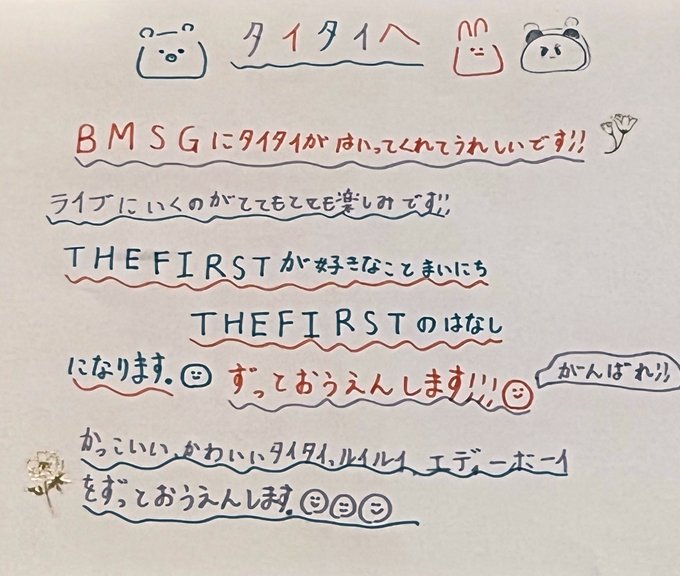 タイタイへ
BMSGにタイタイがはいってくれてうれしいです!!
ライブにいくのがとてもとても楽しみです!!
THEFIRSTが好きなことまいにち
THEFIRSTのはなし
になります。ずっとおうえんします!!!
がんばれ!!
かっこいい、かわいいタイタイ、ルイルイ、エディーホーイ
をずっとおうえんします。